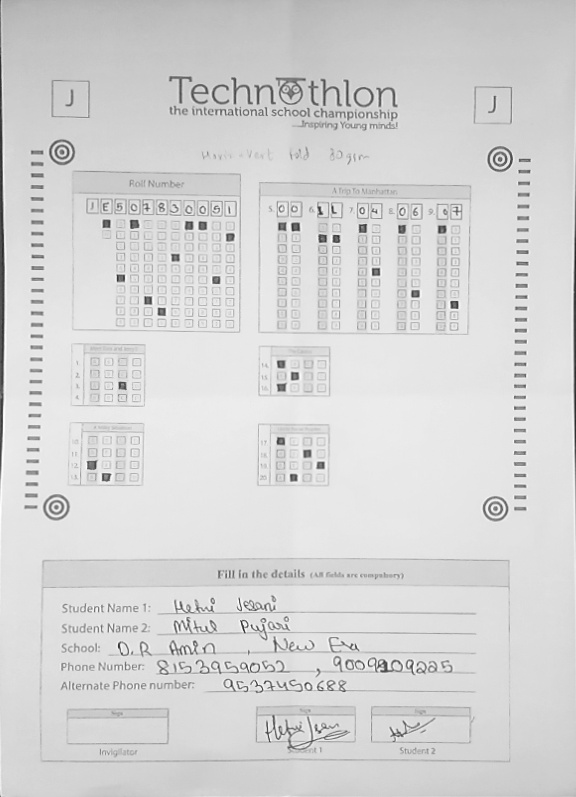 J
Technothlon
the international school championship
....Inspiring Young minds!
J
fold 80gsm
Roll Number
JE507830051
A Trip To Manhattan
5. 00 6. 11 7. 04 8. 06 9. 07
1.
2.
3.
4.
14.
15.
16.
10.
11.
12.
13.
17.
18.
19.
20.
Fill in the details (All fields are compulsory)
Student Name 1: Hetvi Jesani
Student Name 2: Mitul Pujari
School: D.R Amin, New Era
Phone Number: 8153959052, 9009109225
Alternate Phone number: 9537450688
Sign
Sign
Sign
Invigilator
Student 1
Student 2